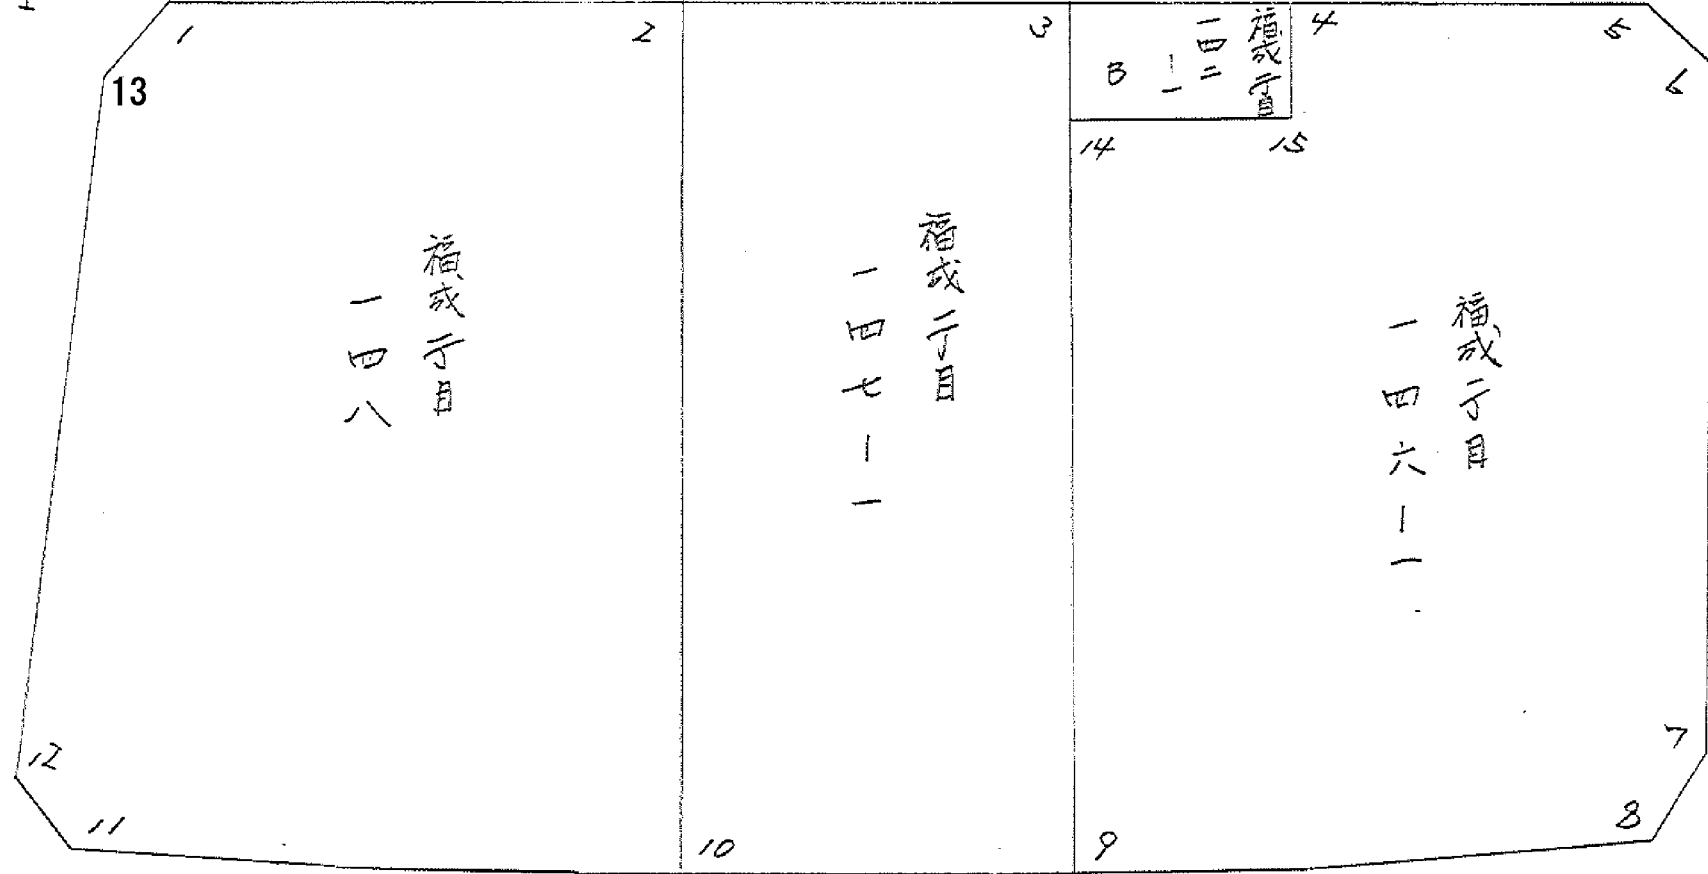 1
2
3
4
5
6
13
福成二丁目
一四二
ー一
B
14
15
福成二丁目
一四八
福成二丁目
一四七ー一
福成二丁目
一四六ー一
7
8
9
10
11
12